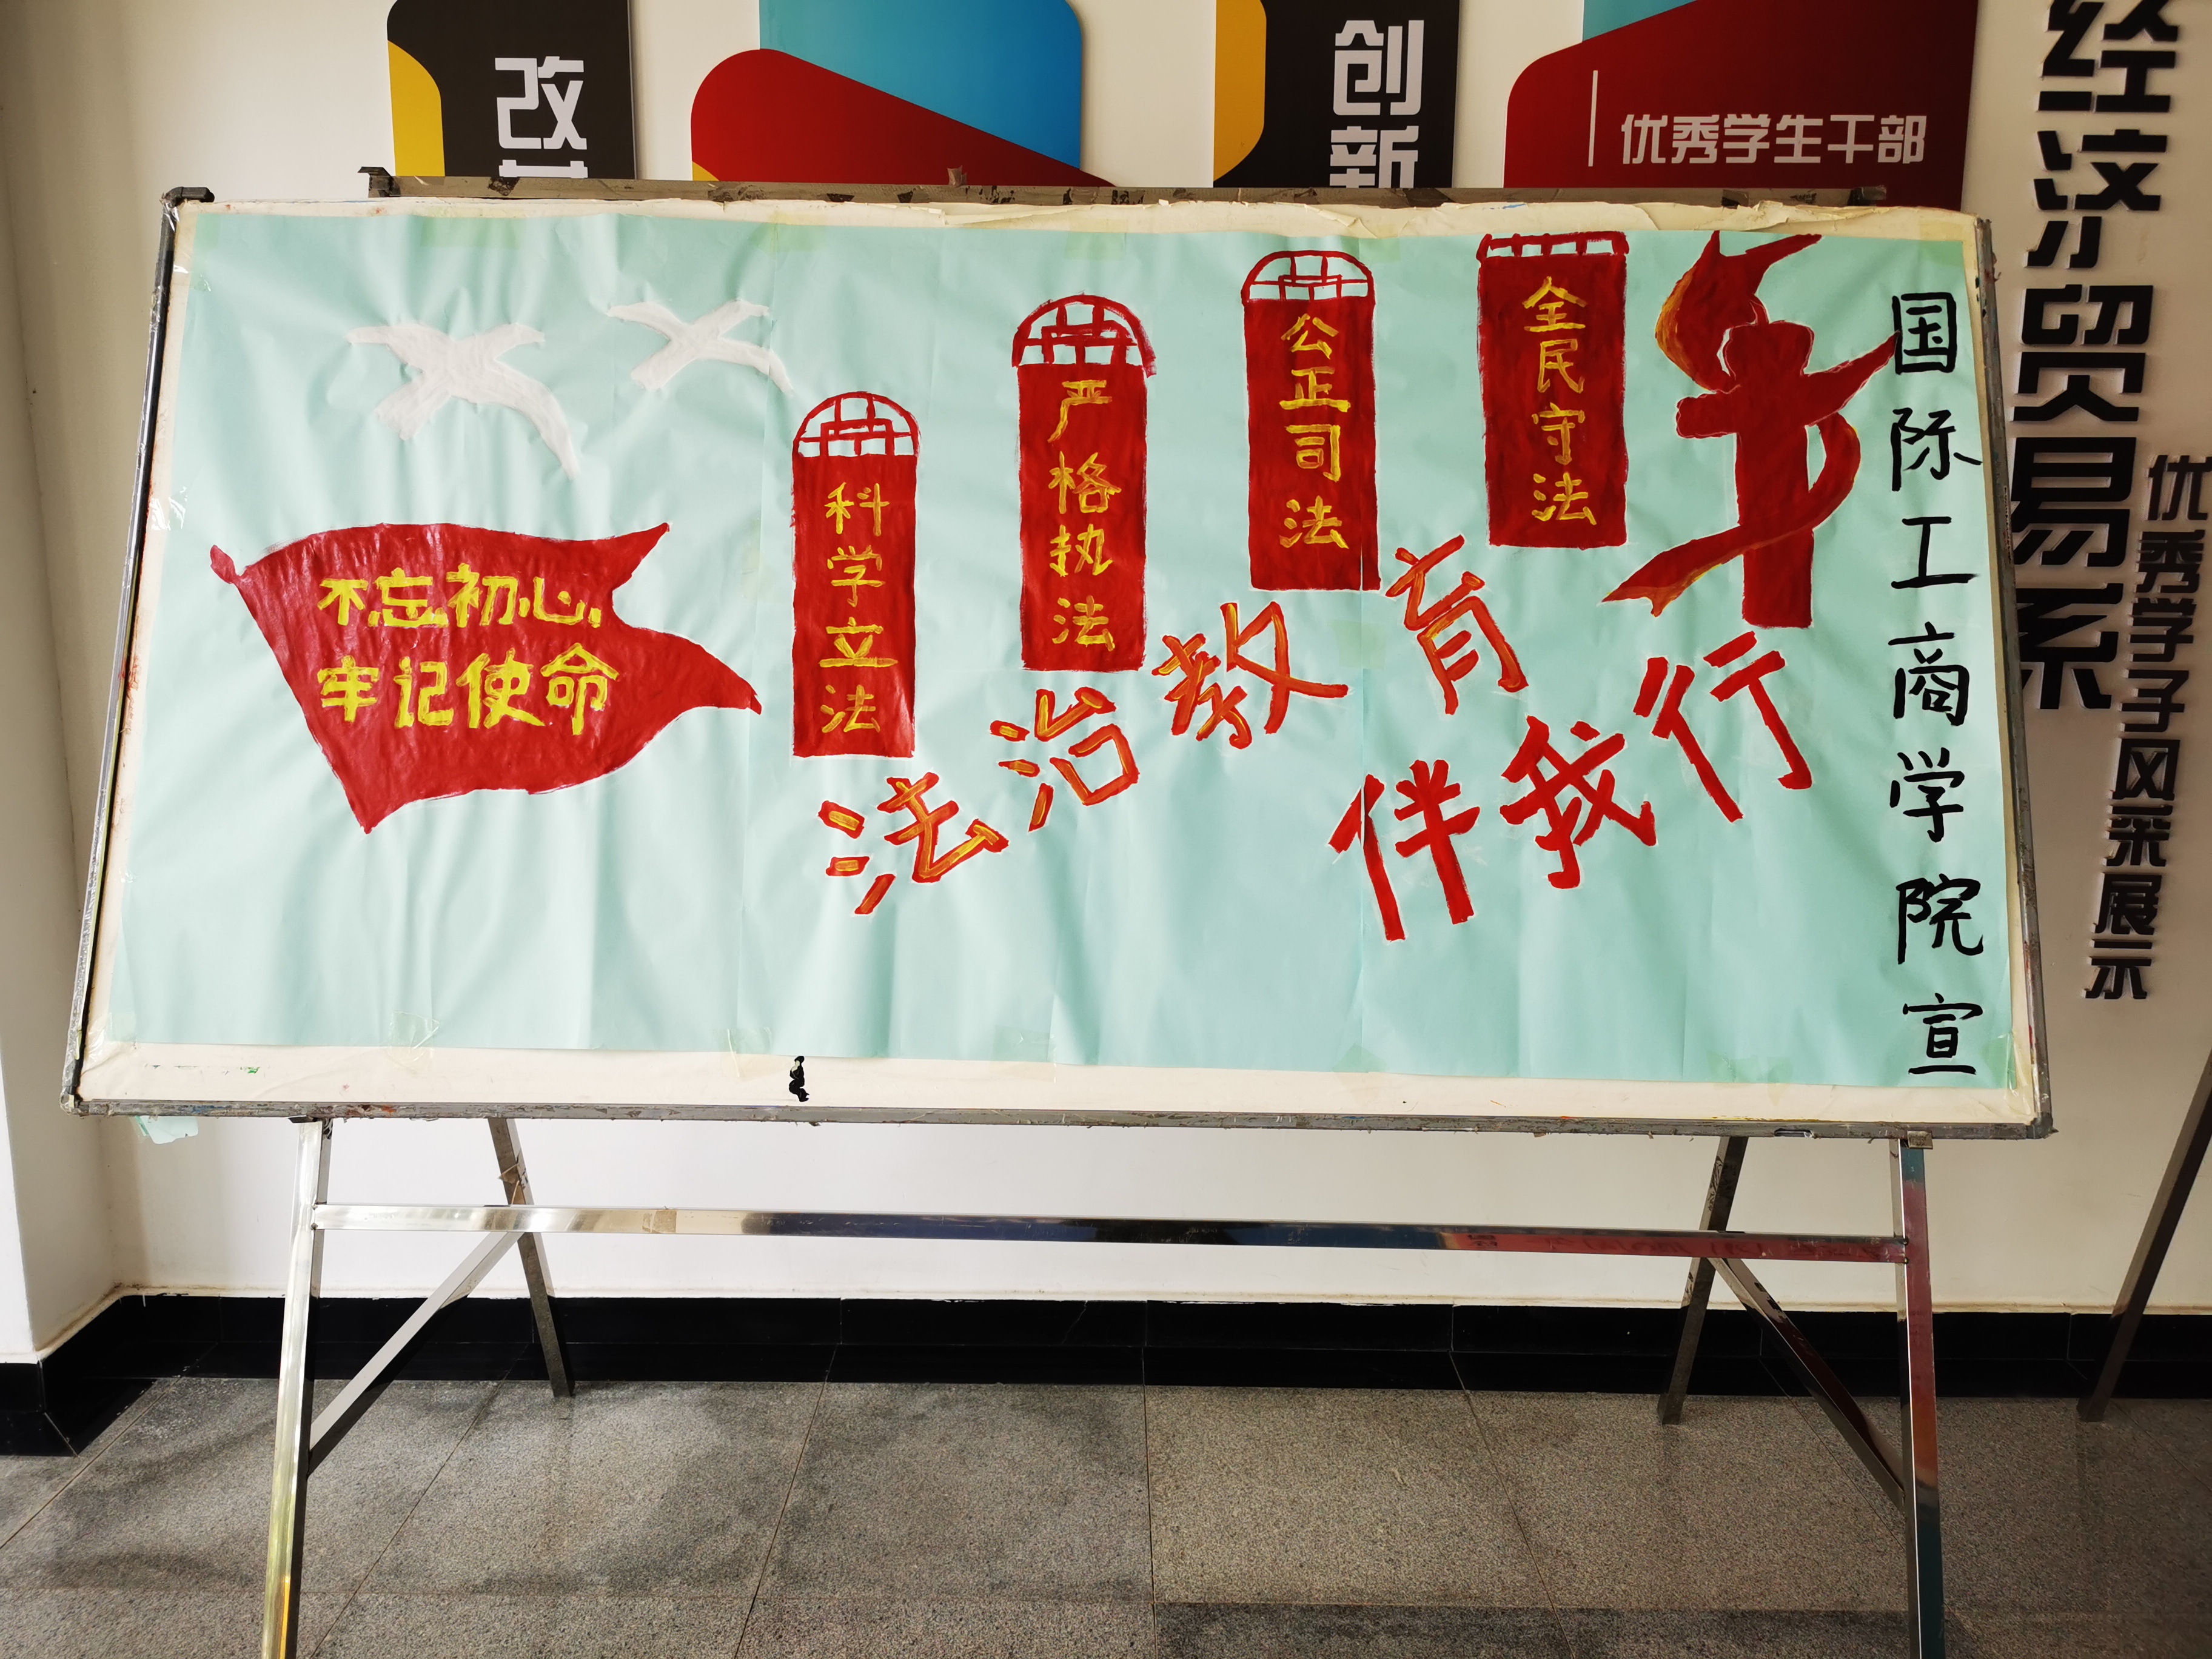 改
创新
优秀学生干部
经济贸易系
优秀学子风采展示
不忘初心
牢记使命
科学立法
严格执法
公正司法
全民守法
法治教育
伴我行
国际工商学院宣